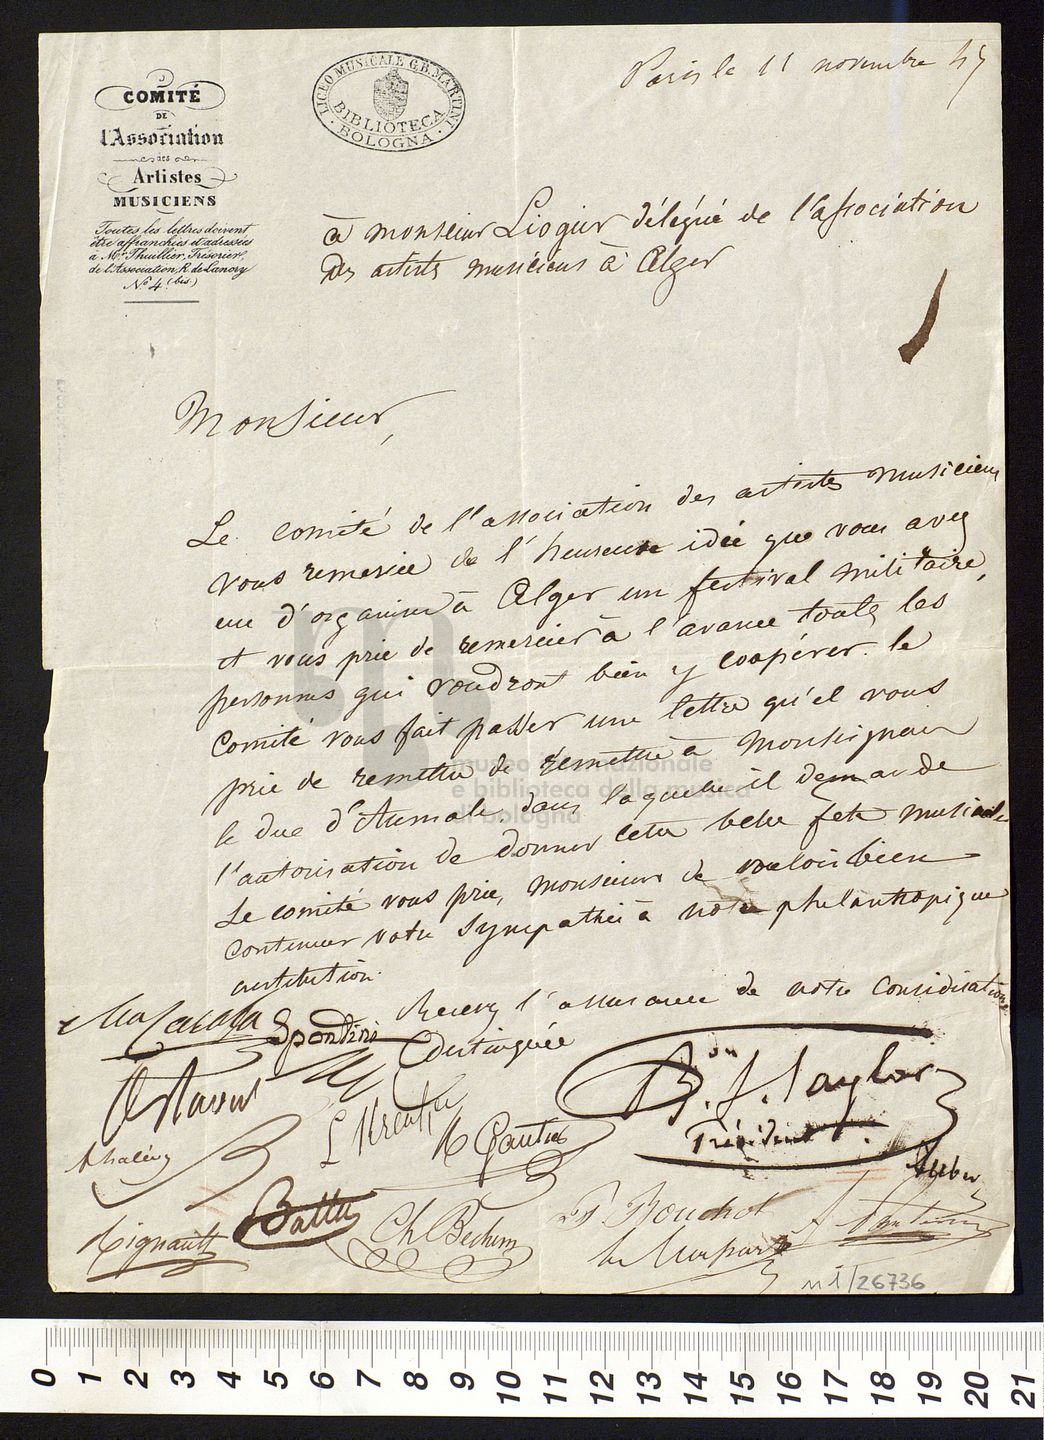 COMITÉ
DE
l'Association
des
Artistes
MUSICIENS
Toutes les lettres doivent
être affranchies et adressées
à Mr. Thuillier, Trésorier
de l'Association, R. de Lancry
No. 4 (bis)
LICEO MUSICALE G.B. MARTINI
BIBLIOTECA
BOLOGNA
Paris le 11 novembre 47
à monsieur Liogier délégué de l'association
des artistes musiciens à Alger
Monsieur,
Le comité de l'association des artistes musiciens
vous remercie de l'heureuse idée que vous avez
eue d'organiser à Alger un festival militaire,
et vous prie de remercier à l'avance toutes les
personnes qui voudront bien y coopérer. le
Comité vous fait passer une lettre qu'il vous
prie de remettre de remettre à Monseigneur
le Duc d'Aumale, dans laquelle il demande
l'autorisation de donner cette belle fête musicale
Le comité vous prie, monsieur de vouloir bien
continuer votre sympathie à notre philantropique
institution.
Recevez l'assurance de notre considération
Distinguée
Carafa
Spontini
A Massart
L Kreutzer
Gautier
Bon J. Taylor
Président
halévy
Auber
Battu
Ch Bechem
Bouchot
n1/26736
museo internazionale
e biblioteca della musica
di bologna
0 1 2 3 4 5 6 7 8 9 10 11 12 13 14 15 16 17 18 19 20 21